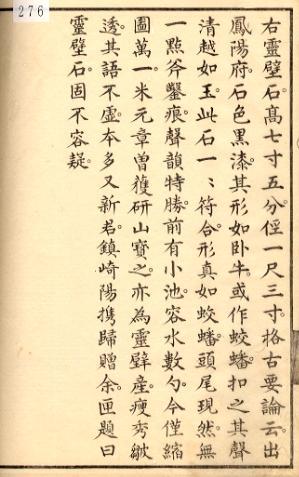 276
右靈璧石。高七寸五分。徑一尺三寸。格古要論云。出
鳳陽府。石色黑漆。其形如卧牛。或作蛟蟠。扣之其聲
清越如玉。此石一〻符合。形真如蛟蟠。頭尾現然。無
一點斧鑿痕。聲韻特勝。前有小池。容水數勺。今僅縮
圖萬一。米元章曽獲研山寳之。亦為靈璧產。瘦秀皺
透。其語不虛。本多又新君。鎮崎陽。携歸贈余。匣題曰
靈壁石。固不容疑。